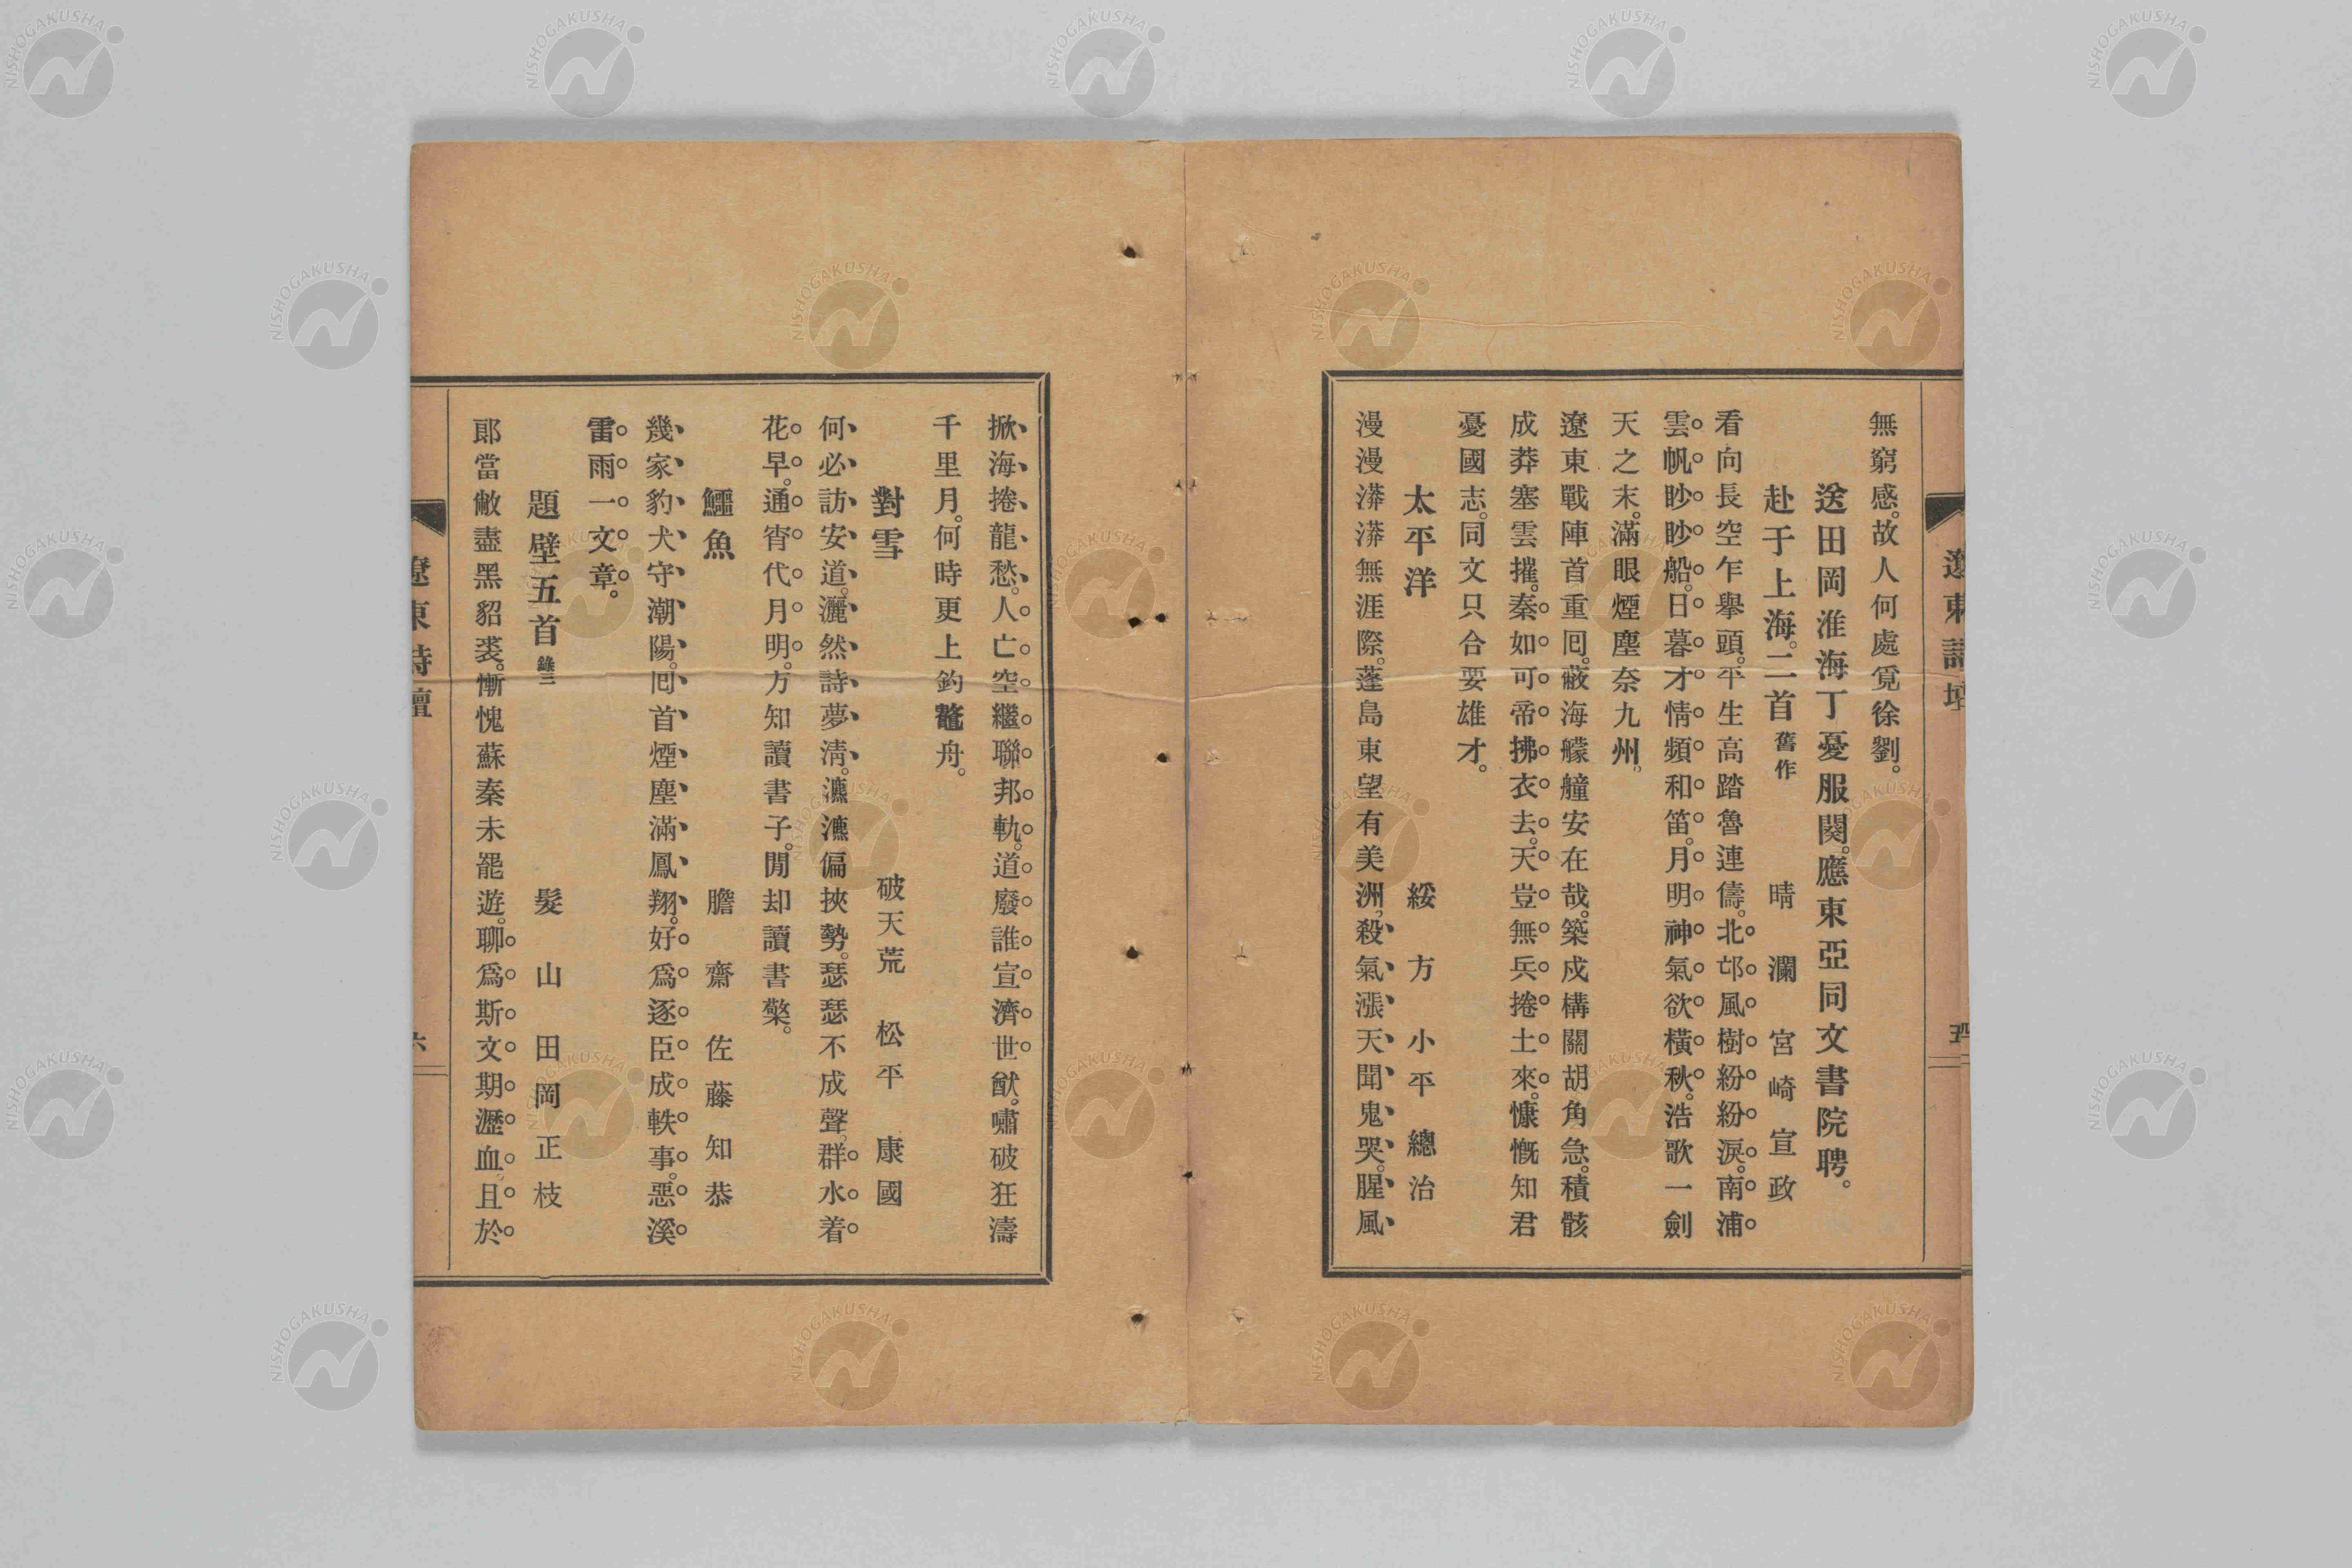 無窮感。故人何處覓徐劉。
送田岡淮海丁憂服闋。應東亞同文書院聘。
赴于上海。二首 舊作 晴瀾 宮崎宣政
看向長空乍擧頭。平生高踏魯連儔。北邙風樹紛紛淚。南浦
雲帆眇眇船。日暮才情頻和笛。月明神氣欲橫秋。浩歌一劍
天之末。滿眼煙塵奈九州。
遼東戰陣首重囘。蔽海艨艟安在哉。築戍構關胡角急。積骸
成莽塞雲摧。秦如可帝拂衣去。天豈無兵捲土來。慷慨知君
憂國志。同文只合要雄才。
太平洋 綏方 小平總治
漫漫漭漭無涯際。蓬島東望有美洲。殺氣漲天聞鬼哭。腥風
遼東詩壇 五
掀海捲龍愁。人亡空繼聯邦軌。道廢誰宣濟世猷。嘯破狂濤
千里月。何時更上釣鼇舟。
對雪 破天荒 松平康國
何必訪安道。灑然詩夢淸。瀌瀌偏挾勢。瑟瑟不成聲。群水着
花早。通宵代月明。方知讀書子。閒却讀書檠。
鱷魚 膽齋 佐藤知恭
幾家豹犬守潮陽。囘首煙塵滿鳳翔。好爲逐臣成軼事。惡溪
雷雨一文章。
題壁五首 錄三 髮山 田岡正枝
郎當敝盡黑貂裘。慚愧蘇秦未罷遊。聊爲斯文期瀝血。且於
遼東詩壇 六
NISHOGAKUSHA